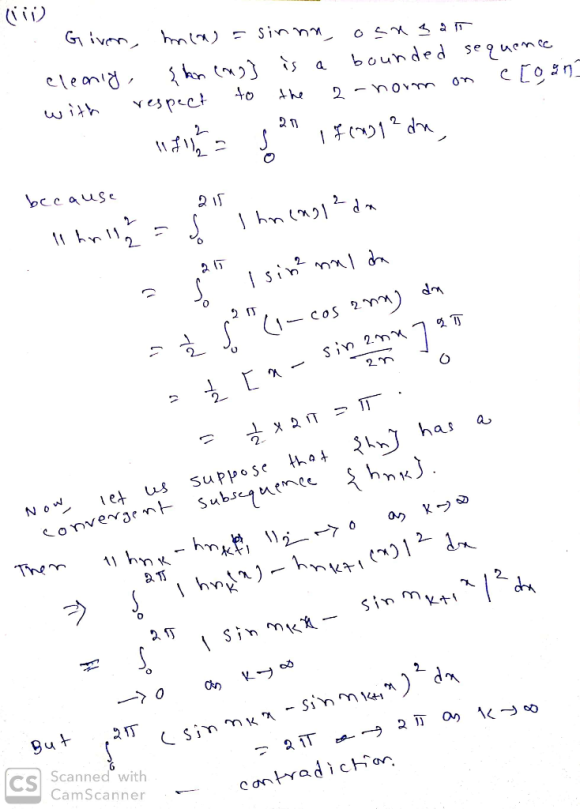 (iii)
Given, hn(x) = sin nx, 0 ≤ x ≤ 2π
clearly, {hn(x)} is a bounded sequence
with respect to the 2-norm on C[0,2π]
||f||₂² = ∫₀^2π |f(x)|² dx,
because
||hn||₂² = ∫₀^2π |hn(x)|² dx
= ∫₀^2π |sin² nx| dx
= 1/2 ∫₀^2π (1 - cos 2nx) dx
= 1/2 [x - sin 2nx / 2n]₀^2π
= 1/2 × 2π = π.
Now, let us suppose that {hn} has a
convergent subsequence {hnk}.
Then ||hnk - hnk+1||₂² → 0 as k→∞
⇒ ∫₀^2π |hnk(x) - hnk+1(x)|² dx
= ∫₀^2π |sin nkx - sin nk+1x|² dx
→ 0 as k→∞
But ∫₀^2π (sin nkx - sin nk+1x)² dx
= 2π → 2π as k→∞
- contradiction.
CS Scanned with
CamScanner